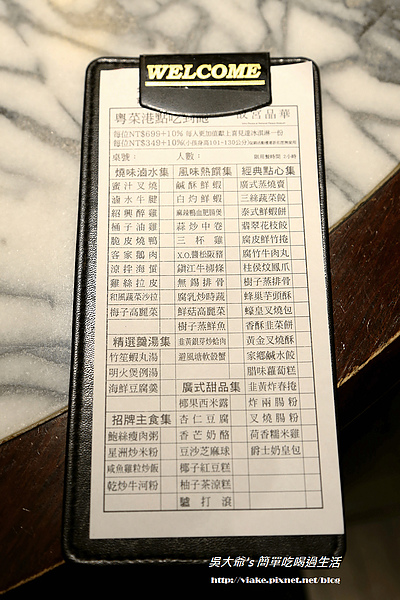 WELCOME
粵菜港點吃到飽 故宮晶華
每位NT$695+10% 每人更加值獻上喜見達冰淇淋一份
每位NT$349+10%
桌號: 人數: 
燒味滷水集 風味熱饌集 經典點心集
蜜汁叉燒 鹹酥鮮蝦 廣式蒸燒賣
滷水牛腱 白灼鮮蝦 三絲蒸蔬餃
紹興醉雞 麻辣鴨血肥腸煲 泰式鮮蝦餅
桶子油雞 蒜炒中卷 翡翠花枝餃
脆皮燒鴨 三杯雞 腐皮鮮竹捲
客家鵝肉 X.O.醬松阪豬 腐竹牛肉丸
涼拌海蜇 鎮江牛柳條 柱侯炆鳳爪
雞絲拉皮 無錫排骨 樹子蒸排骨
和風蔬菜沙拉 腐乳炒時蔬 蜂巢芋頭酥
梅子高麗菜 鮮菇高麗菜 蠔皇叉燒包
樹子蒸鮮魚 香酥韭菜餅
精選羹湯集 韭黃銀芽炒蛤肉 黃金叉燒酥
竹笙蝦丸湯 避風塘軟殼蟹 家鄉鹹水餃
明火煲例湯 臘味蘿蔔糕
海鮮豆腐羹 廣式甜品集 韭黃炸春捲
椰果西米露 炸兩腸粉
招牌主食集 杏仁豆腐 叉燒腸粉
鮑絲瘦肉粥 香芒奶酪 荷香糯米雞
星洲炒米粉 豆沙芝麻球 爵士奶皇包
咸魚雞粒炒飯 椰子紅豆糕
乾炒牛河粉 柚子茶涼糕
驢打滾
吳大爺's 簡單吃喝過生活
http://viake.pixnet.net/blog